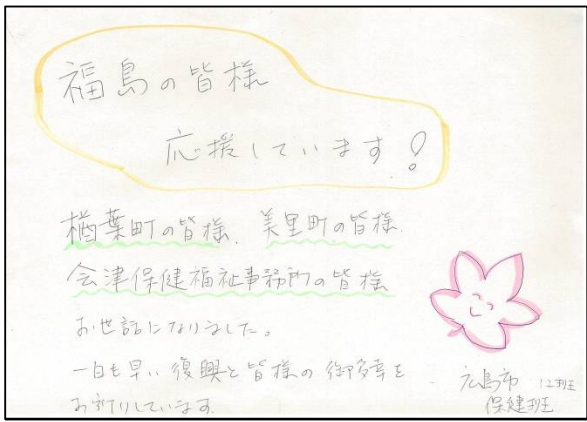 福島の皆様
応援しています!
楢葉町の皆様、美里町の皆様
会津保健福祉事務所の皆様
お世話になりました。
一日も早い復興と皆様の御多幸を
お祈りしています。
広島市 12班
保健班